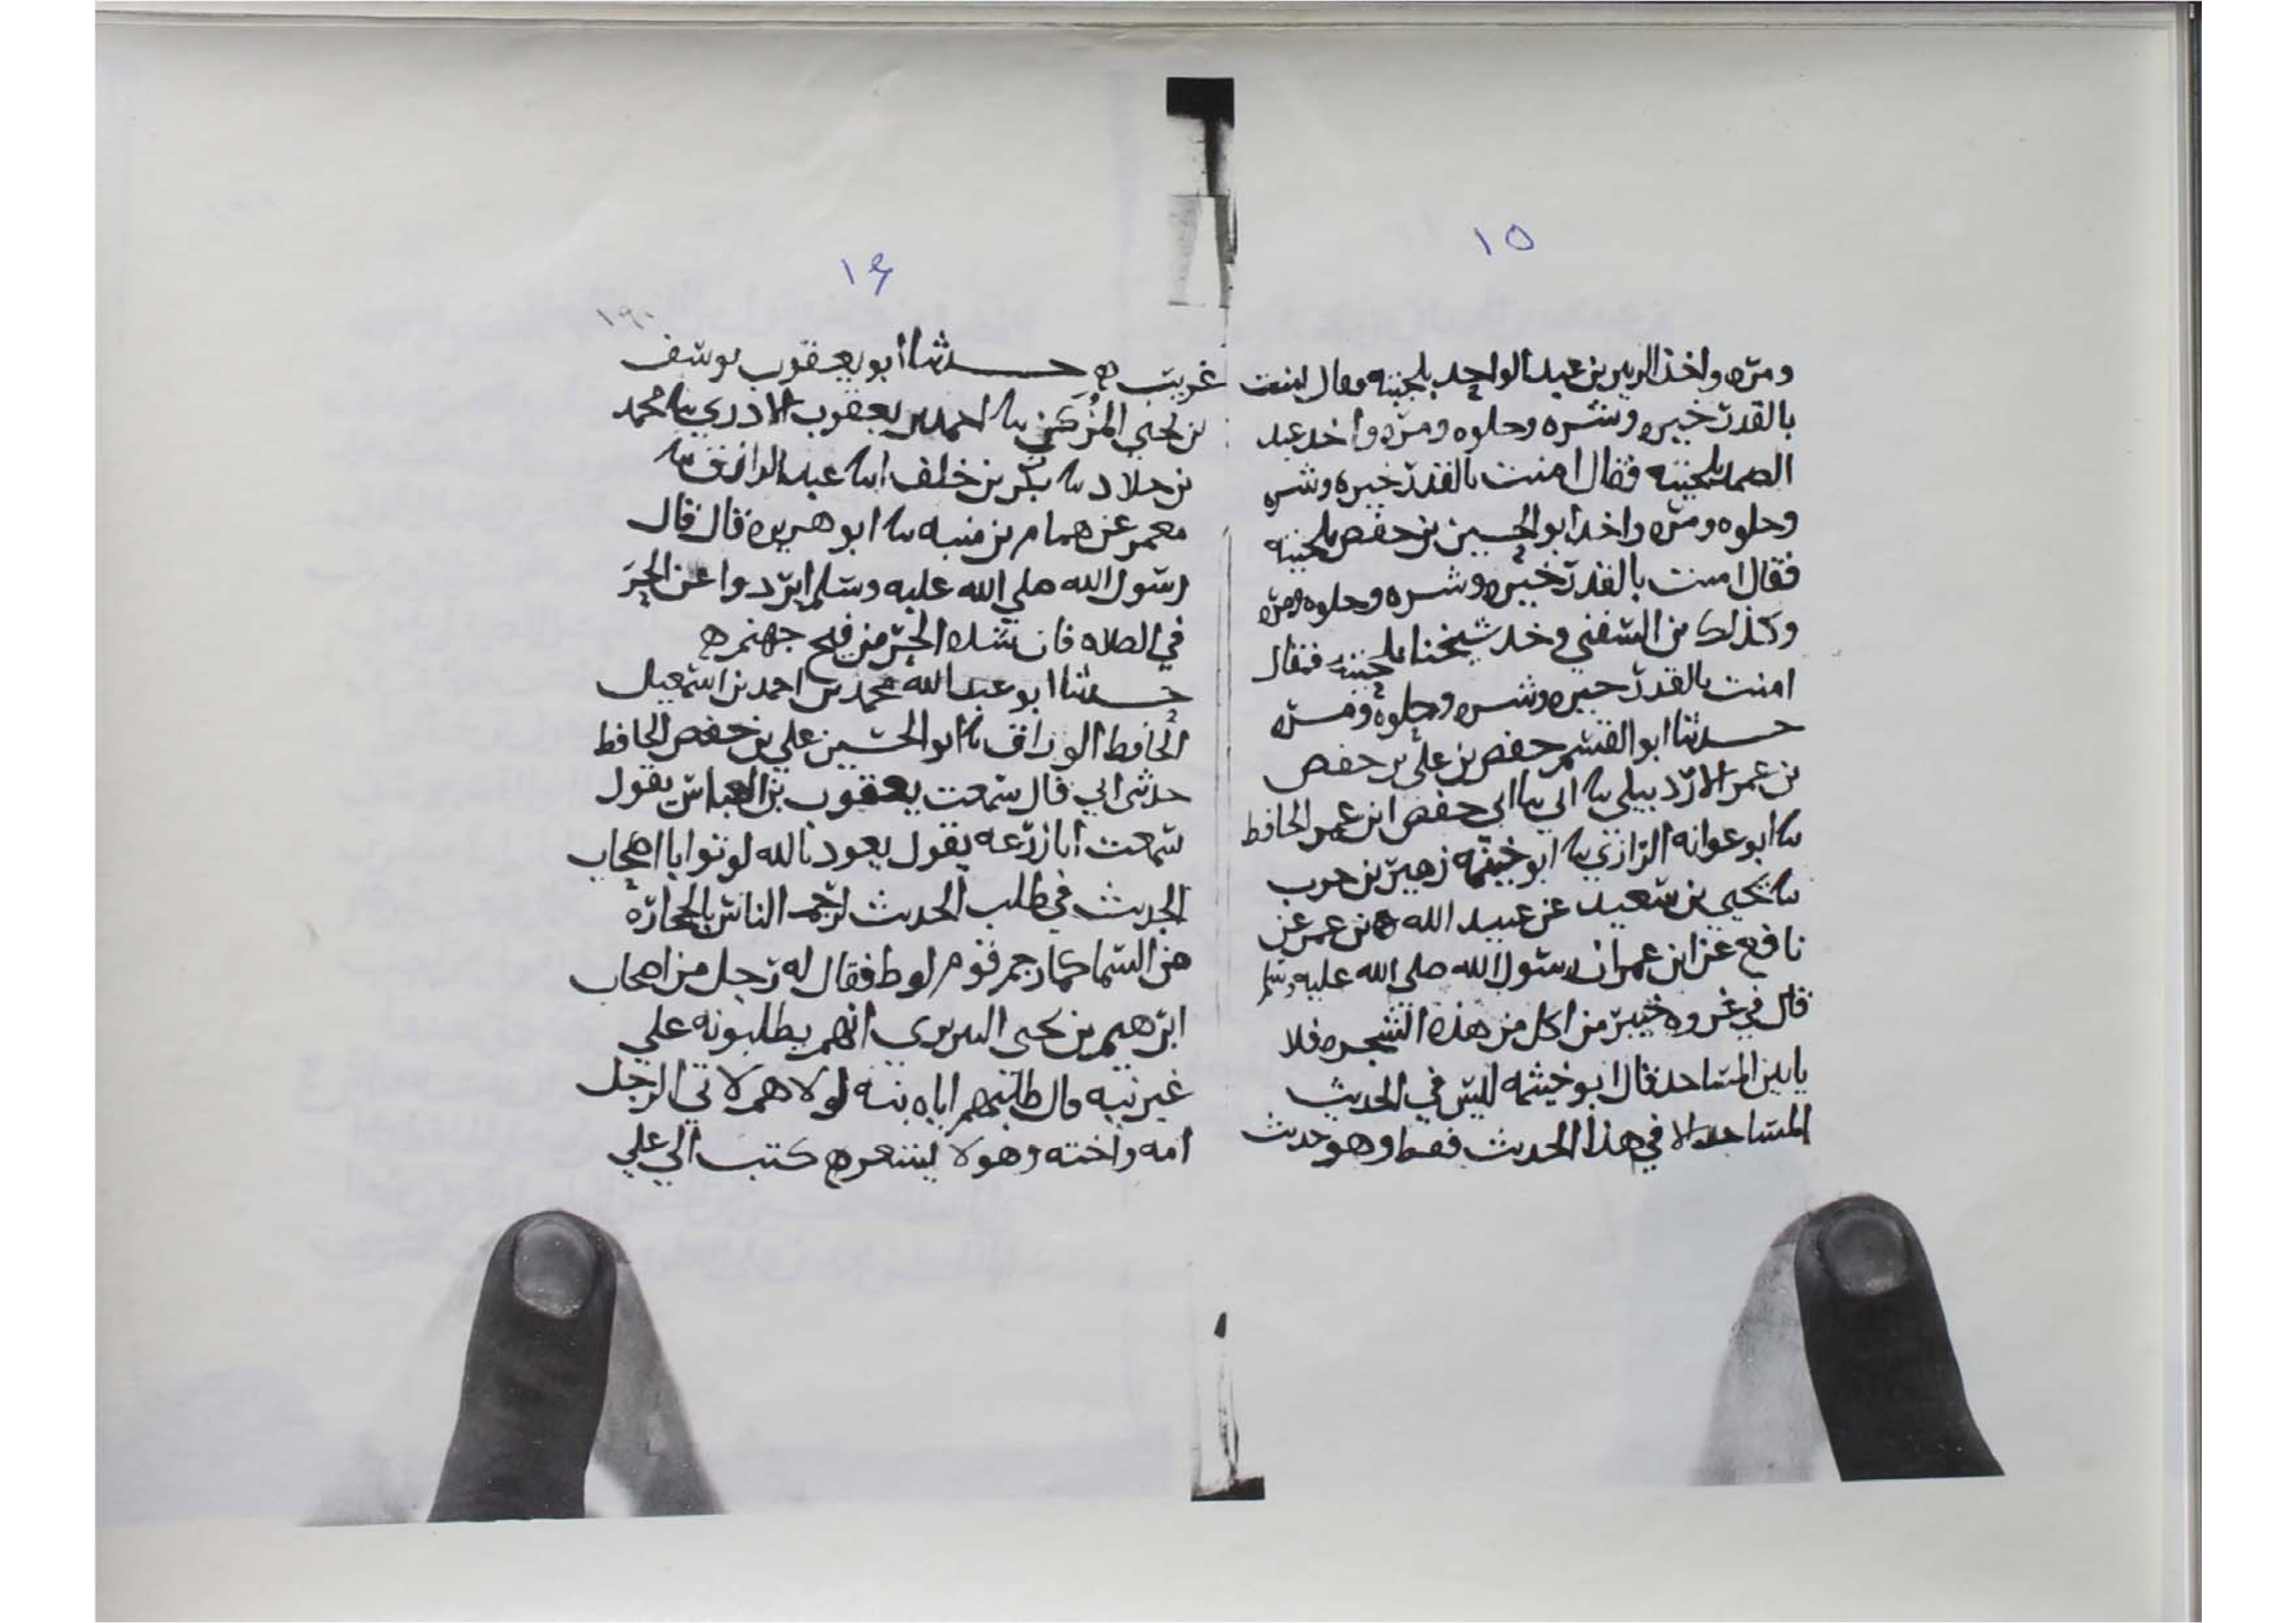 ١٥
ومره واخذ الزبير بن عبد الواحد بلحيته وقال امنت
بالقدر خيره وشره وحلوه ومره واخد عبد
الصمد بلحيته فقال امنت بالقدر خيره وشره
وحلوه ومره واخد ابو الحسين بن حفص بلحيته
فقال امنت بالقدر خيره وشره وحلوه ومره
وكذلك بن السفني وخد شيخنا بلحيته فقال
امنت بالقدر خيره وشره وحلوه ومره
حدثنا ابو القسم حفص بن علي بن حفص
بن عمر الاردبيلي نا ابي نا ابي حفص ابن عمر الحافظ
نا ابو عوانه الرازي نا ابو خيثمه زهير بن حرب
نا يحيى بن سعيد عن عبيد الله بن عمر عن
نافع عن ابن عمر ان رسول الله صلى الله عليه وسلم
قال في غزوه خيبر من اكل من هذه الشجره فلا
ياتين المساجد قال ابو خيثمه ليس في الحديث
المساجد الا في هذا الحديث فقط وهو حديث
١٦
١٩٠
غريب ه حدثنا ابو يعقوب يوسف
بن يحيى المزكي نا احمد بن يعقوب الاذري نا محمد
بن خلاد نا بكر بن خلف انا عبد الرازق نا
معمر عن همام بن منبه نا ابو هريره قال قال
رسول الله صلي الله عليه وسلم ابردوا عن الحر
في الصلاه فان شده الحر من فيح جهنم ه
حدثنا ابو عبد الله محمد بن احمد بن اسمعيل
الحافظ الوراق نا ابو الحسين علي بن حفص الحافظ
حدثني ابي قال سمعت يعقوب بن العباس يقول
سمعت ابا زرعه يقول يعود بالله لو توانا اصحاب
الحديث في طلب الحديث لرجم الناس بالحجارة
من السما كما رجم قوم لوط فقال له رجل من اصحاب
ابرهيم بن يحيى انهم يطلبونه علي
غير نيه قال طلبهم اياه نيه لولا هم لاتي الرجل
امه واخته وهو لا يشعر ه كتب الي علي